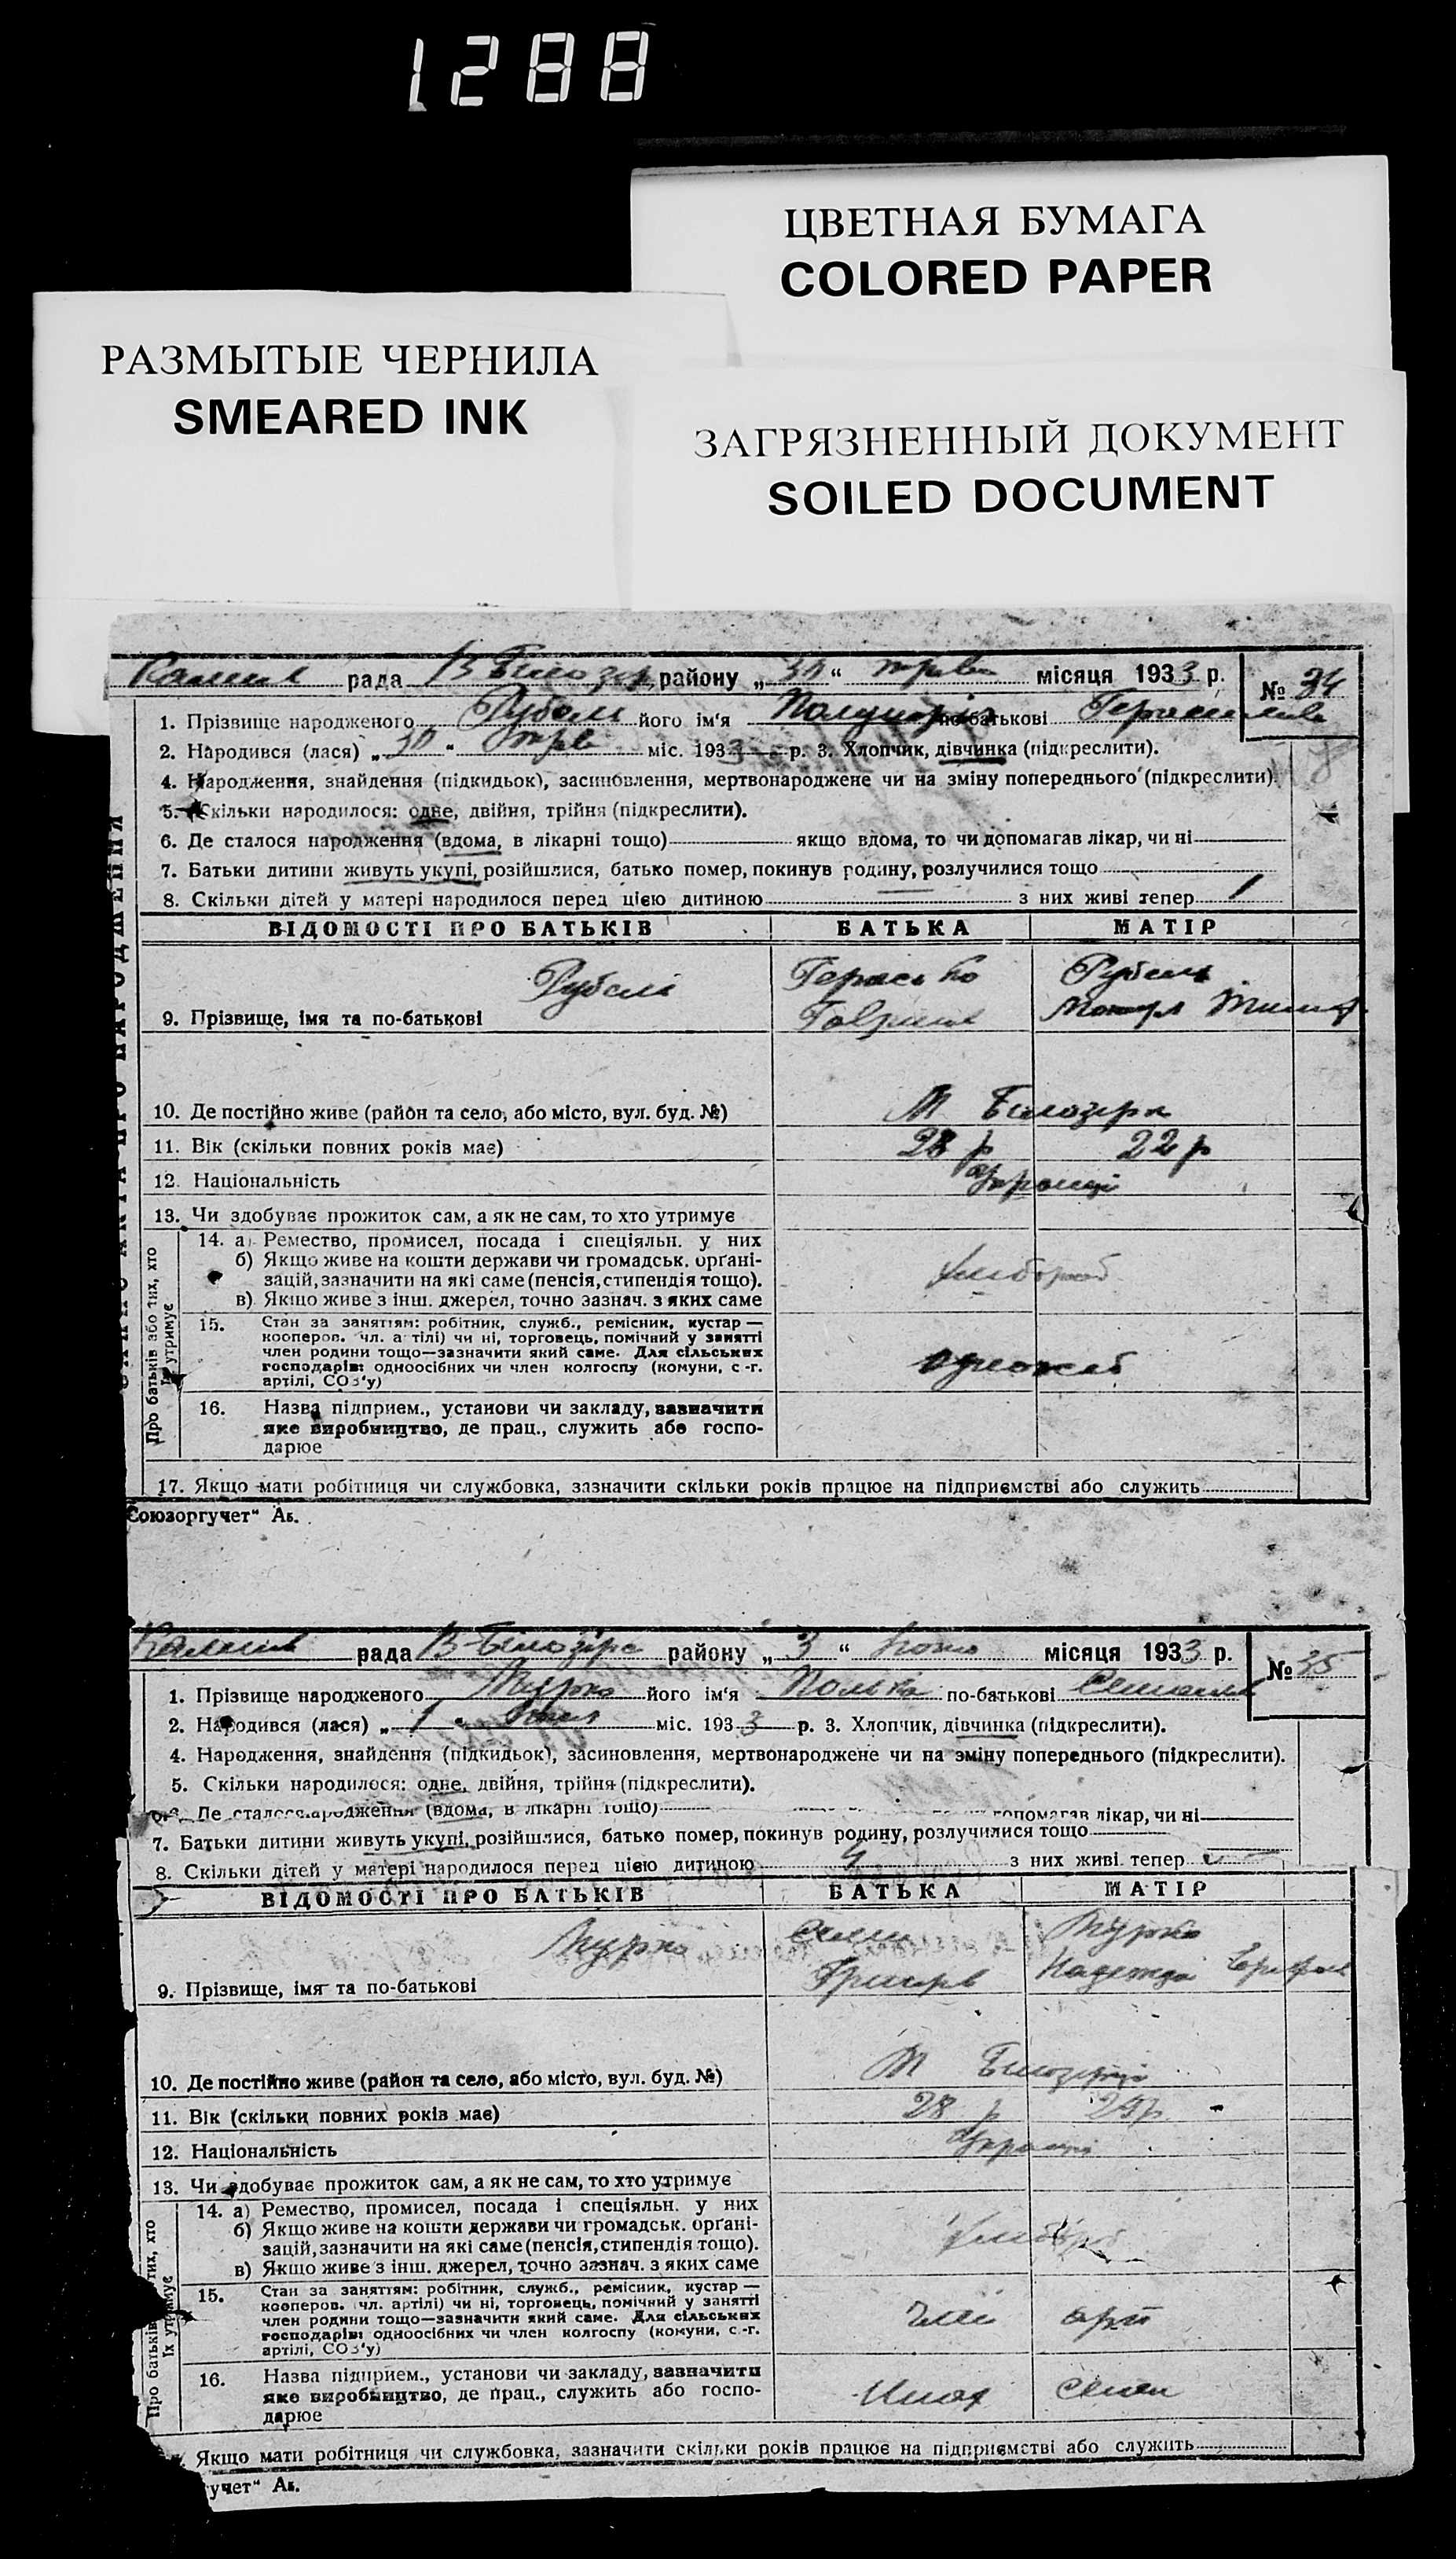 1288
ЦВЕТНАЯ БУМАГА
COLORED PAPER
РАЗМЫТЫЕ ЧЕРНИЛА
SMEARED INK
ЗАГРЯЗНЕННЫЙ ДОКУМЕНТ
SOILED DOCUMENT
рада В Білозер району „30“ трав місяця 1933 р. № 34
1. Прізвище народженого Рубель його ім'я по-батькові
2. Народився (лася) „30“ трв міс. 1933 р. 3. Хлопчик, дівчинка (підкреслити).
4. Народження, знайдення (підкидьок), засиновлення, мертвонароджене чи на зміну попереднього (підкреслити).
5. Скільки народилося: одне, двійня, трійня (підкреслити).
6. Де сталося народження (вдома, в лікарні тощо) якщо вдома, то чи допомагав лікар, чи ні
7. Батьки дитини живуть укупі, розійшлися, батько помер, покинув родину, розлучилися тощо
8. Скільки дітей у матері народилося перед цією дитиною з них живі тепер 1
ВІДОМОСТІ ПРО БАТЬКІВ БАТЬКА МАТІР
Рубель Герасько Рубель
9. Прізвище, імя та по-батькові
10. Де постійно живе (район та село, або місто, вул. буд. №) М Білозерка
11. Вік (скільки повних років має) 28 р 22 р
12. Національність Україці
13. Чи здобуває прожиток сам, а як не сам, то хто утримує
14. а) Ремество, промисел, посада і спеціяльн. у них
б) Якщо живе на кошти держави чи громадськ. органі-
зацій, зазначити на які саме (пенсія, стипендія тощо). хлібороб
в) Якщо живе з інш. джерел, точно зазнач. з яких саме
15. Стан за заняттям: робітник, служб., ремісник, кустар —
кооперов. чл. а тілі) чи ні, торговець, помічний у занятті
член родини тощо—зазначити який саме. Для сільських
господарів: одноосібних чи член колгоспу (комуни, с-г.
артілі, СОЗ'у)
16. Назва підприєм., установи чи закладу, зазначити
яке виробництво, де прац., служить або госпо-
дарює
Про батьків або тих, хто
їх утримує
17. Якщо мати робітниця чи службовка, зазначити скільки років працює на підприємстві або служить
Союзоргучет“ Ав.
рада В-Білозірс району „3“ місяця 1933 р. № 35
1. Прізвище народженого Мурко його ім'я Полька по-батькові
2. Народився (лася) „1“ міс. 1933 р. 3. Хлопчик, дівчинка (підкреслити).
4. Народження, знайдення (підкидьок), засиновлення, мертвонароджене чи на зміну попереднього (підкреслити).
5. Скільки народилося: одне, двійня, трійня (підкреслити).
Де сталося народження (вдома, в лікарні тощо) допомагав лікар, чи ні
7. Батьки дитини живуть укупі, розійшлися, батько помер, покинув родину, розлучилися тощо
8. Скільки дітей у матері народилося перед цією дитиною 4 з них живі тепер
ВІДОМОСТІ ПРО БАТЬКІВ БАТЬКА МАТІР
Мурко Мурко
9. Прізвище, імя та по-батькові Григорв Надежда
10. Де постійно живе (район та село, або місто, вул. буд. №) М
11. Вік (скільки повних років має) 28 р
12. Національність Україці
13. Чи здобуває прожиток сам, а як не сам, то хто утримує
14. а) Ремество, промисел, посада і спеціяльн. у них
б) Якщо живе на кошти держави чи громадськ. органі-
зацій, зазначити на які саме (пенсія, стипендія тощо). хлібороб
в) Якщо живе з інш. джерел, точно зазнач. з яких саме
15. Стан за заняттям: робітник, служб., ремісник, кустар —
кооперов. чл. артілі) чи ні, торговець, помічний у занятті
член родини тощо—зазначити який саме. Для сільських член арт
господарів: одноосібних чи член колгоспу (комуни, с.-г.
артілі, СОЗ'у)
16. Назва підприєм., установи чи закладу, зазначити
яке виробництво, де прац., служить або госпо- Шлях
дарює
Про батьків тих, хто
їх утримує
Якщо мати робітниця чи службовка, зазначити скільки років працює на підприємстві або служить
гучет“ Ав.